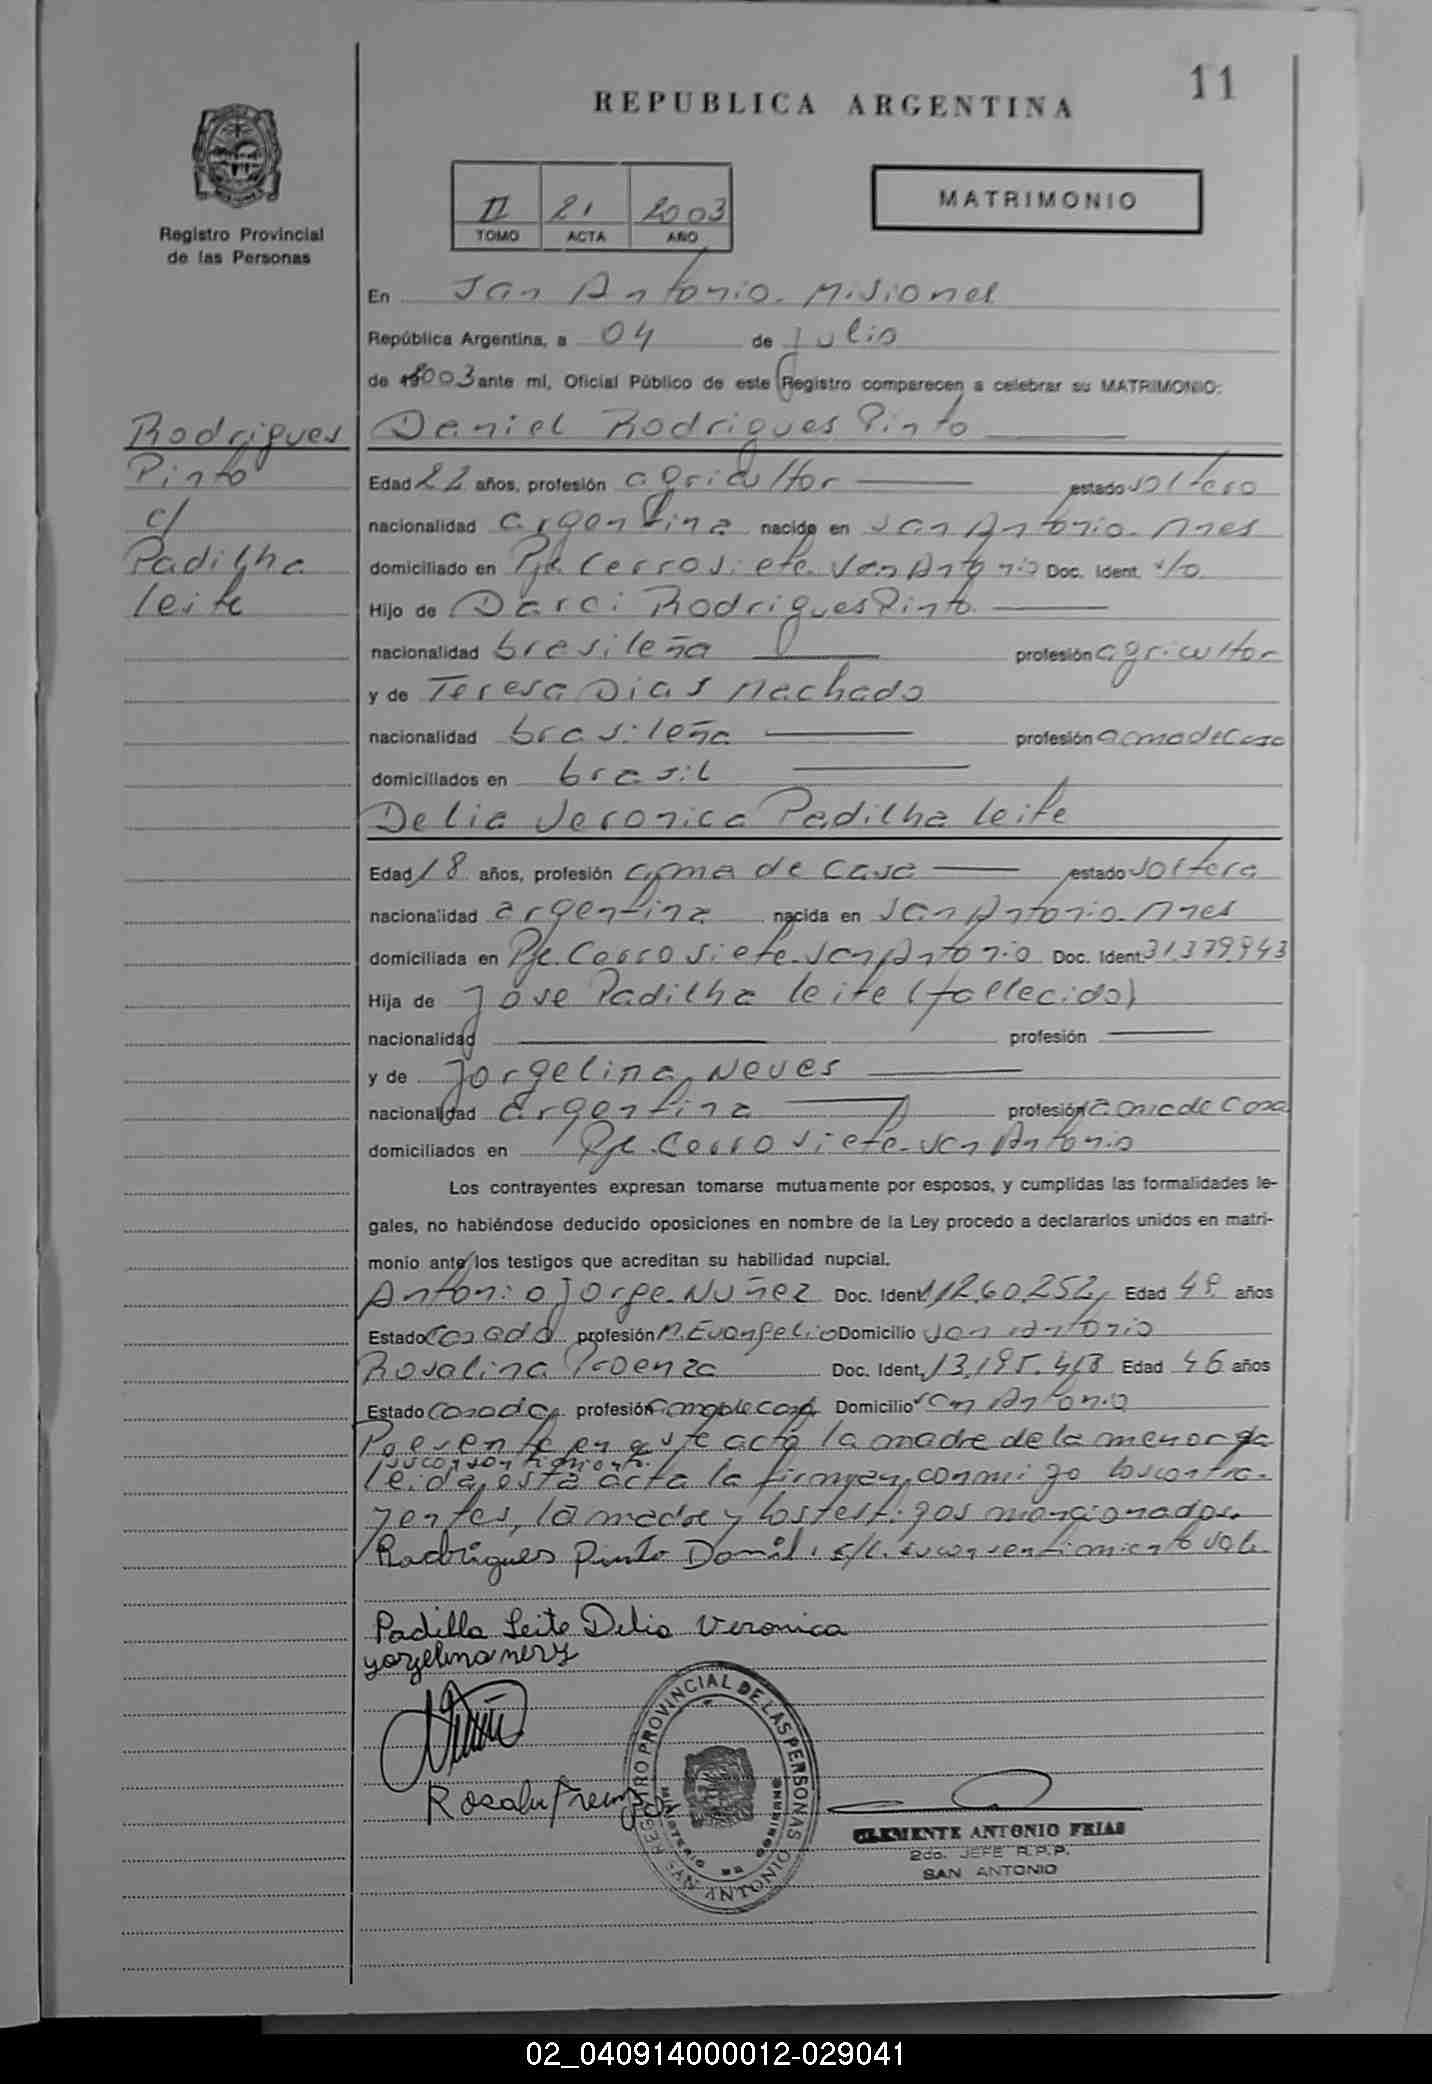 11
REPUBLICA ARGENTINA
II 21 2003
TOMO ACTA AÑO
MATRIMONIO
Registro Provincial
de las Personas
En San Antonio. Misiones
República Argentina, a 04 de Julio
de 2003 ante mi, Oficial Público de este Registro comparecen a celebrar su MATRIMONIO:
Rodrigues
Pinto
c/
Padilha
leite
Daniel Rodrigues Pinto
Edad 22 años, profesión agricultor estado soltero
nacionalidad argentina nacido en San Antonio. Mnes
domiciliado en Pje. Cerro siete. San Antonio Doc. Ident.
Hijo de Darci Rodrigues Pinto
nacionalidad brasileña profesión agricultor
y de Teresa Dias Machado
nacionalidad brasileña profesión ama de casa
domiciliados en brasil
Delia Veronica Padilha leite
Edad 18 años, profesión ama de casa estado soltera
nacionalidad argentina nacida en San Antonio. Mnes
domiciliada en Pje. Cerro siete. San Antonio Doc. Ident. 31.379.943
Hija de Jose Padilha leite (fallecido)
nacionalidad profesión
y de Jorgelina Neves
nacionalidad argentina profesión ama de casa
domiciliados en Pje. Cerro siete. San Antonio
Los contrayentes expresan tomarse mutuamente por esposos, y cumplidas las formalidades le-
gales, no habiéndose deducido oposiciones en nombre de la Ley procedo a declararlos unidos en matri-
monio ante los testigos que acreditan su habilidad nupcial.
Antonio Jorge Nuñez Doc. Ident. 11.260.252 Edad 48 años
Estado Casado profesión M. Evangelio Domicilio San Antonio
Rosalina Proenza Doc. Ident. 13.195.418 Edad 46 años
Estado Casada profesión ama de casa Domicilio San Antonio
Presente en este acto la madre de la menor da
su consentimiento.
leida esta acta la firman conmigo los contra-
yentes, la madre y los testigos mencionados.
Rodrigues Pinto Daniel. s/l. su consentimiento vale
Padilla Leite Delia Veronica
REGISTRO PROVINCIAL DE LAS PERSONAS
MINISTERIO DE GOBIERNO
SAN ANTONIO
CLEMENTE ANTONIO FRIAS
2do. JEFE R.P.P.
SAN ANTONIO
02_040914000012-029041